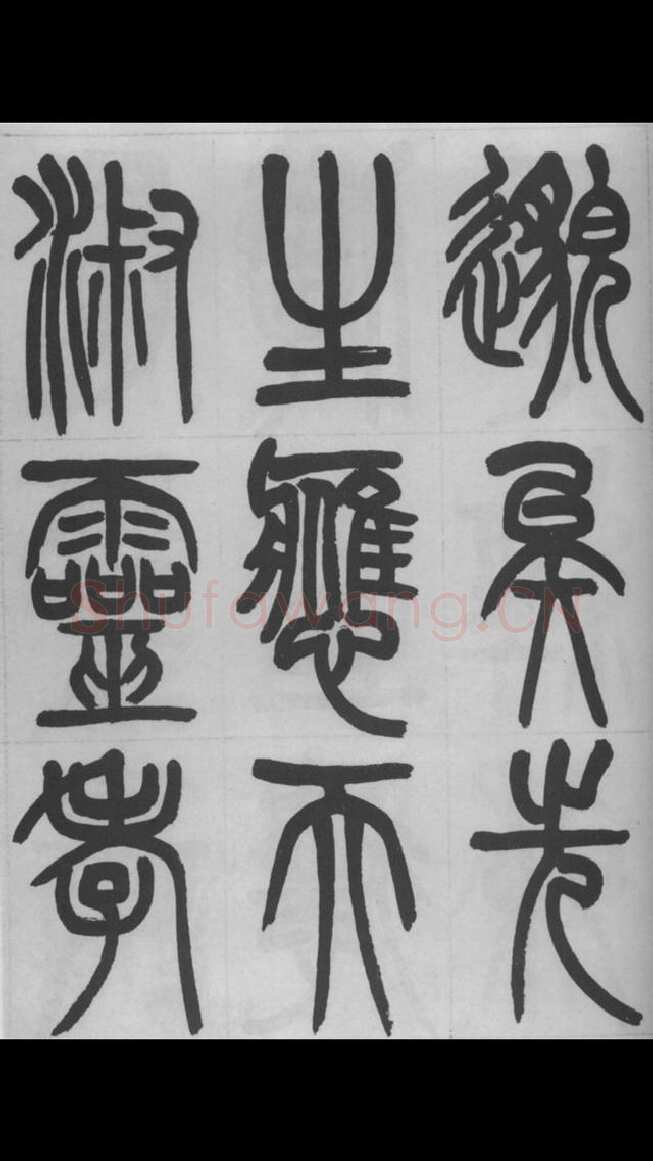 邈矣先
生應天
淑靈孝
Shufawang.CN